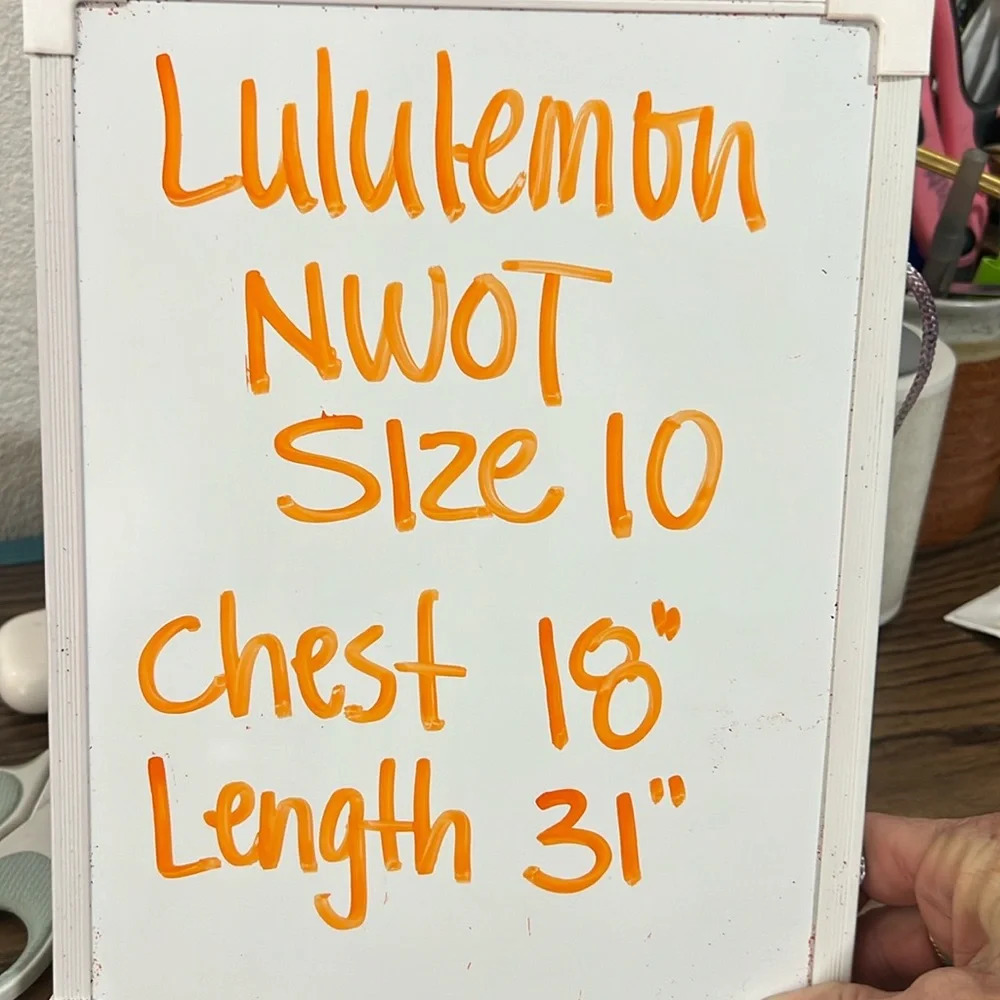 Lululemon
NWOT
SIze 10
Chest 18"
Length 31"